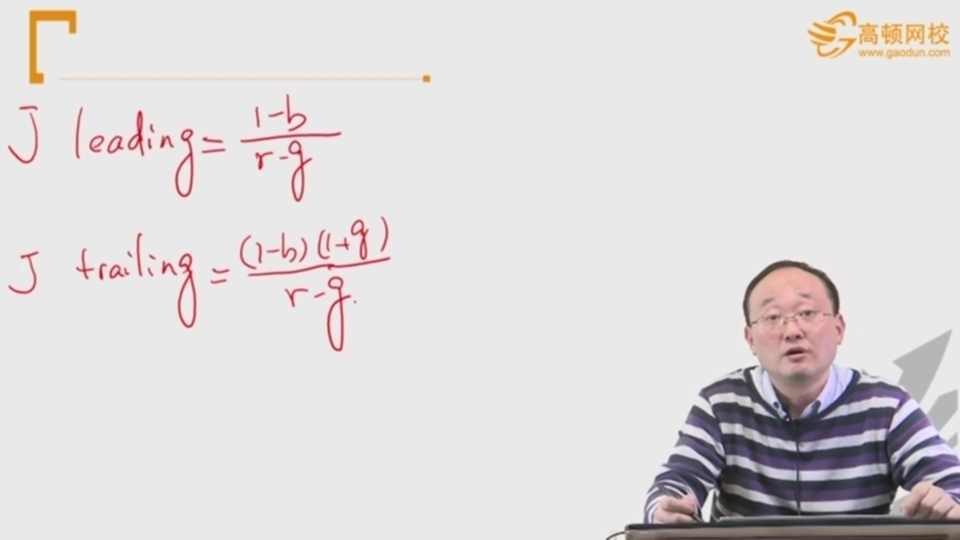 高顿网校
www.gaodun.com
J leading = (1-b)/(r-g)
J trailing = (1-b)(1+g)/(r-g)